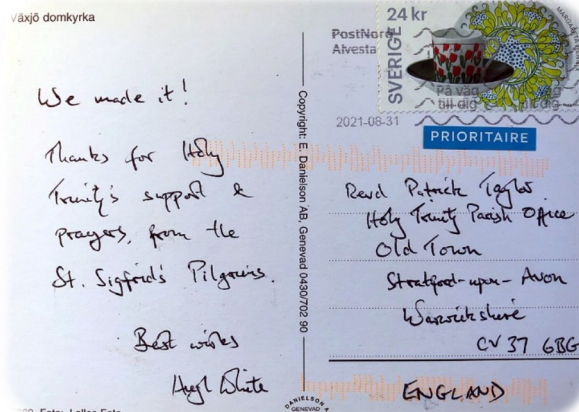 Växjö domkyrka
We made it!
Thanks for Holy
Trinity's support &
prayers, from the
St. Sigfrid's Pilgrims.
Best wishes
Hugh White
Copyright: E. Danielson AB, Genevad 0430/702 90
DANIELSON
GENEVAD
Foto:
24 kr
SVERIGE
PostNord
Alvesta
På väg
till dig
2021-08-31
PRIORITAIRE
Revd Patrick Taylor
Holy Trinity Parish Office
Old Town
Stratford-upon-Avon
Warwickshire
CV37 6BG
ENGLAND